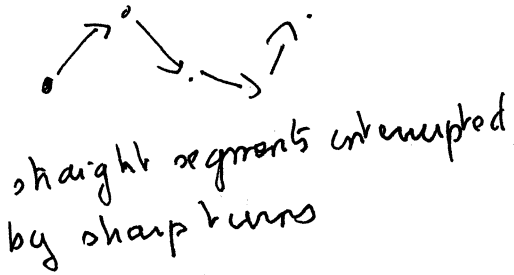 straight segments interrupted
by sharp turns